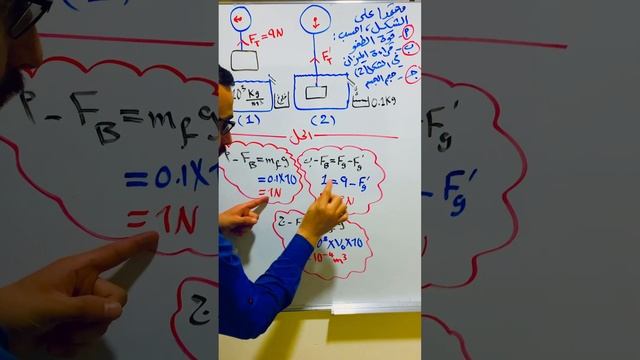 معتمدا على
الشكل، احسب:
P - قوة الطفو
ب - قراءة الميزان
في الشكل (2)
ج - حجم الجسم
F_T = 9N
F_T'
Kg/m³
0.1Kg
(1)
(2)
الحل
P - F_B = m_f g
= 0.1X10
= 1N
ب - F_B = F_g - F_g'
1 = 9 - F_g'
N
ج - F
X V_o X 10
10⁻⁴ m³
P - F_B = m_f g
= 0.1X10
= 1N
- F_g'